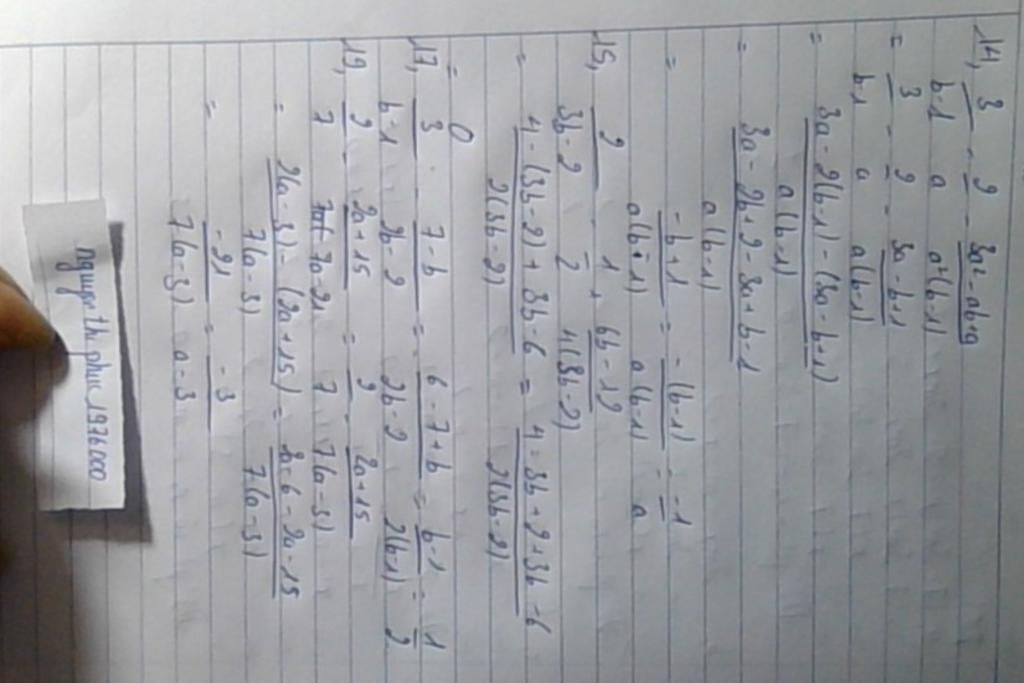 14, 3/b-1 - 2/a - 3a²-ab+a/a²(b-1)
= 3/b-1 - 2/a - 3a-b+1/a(b-1)
= 3a-2(b-1)-(3a-b+1)/a(b-1)
= 3a-2b+2-3a+b-1/a(b-1)
= -b+1/a(b-1) = -(b-1)/a(b-1) = -1/a
15, 2/3b-2 - 1/2 + 6b-12/4(3b-2)
= 4-(3b-2)+3b-6/2(3b-2) = 4-3b+2+3b-6/2(3b-2)
= 0
17, 3/b-1 - 7-b/2b-2 = 6-7+b/2b-2 = b-1/2(b-1) = 1/2
19, 2/7 - 2a+15/7a-21 = 2/7 - 2a+15/7(a-3)
= 2(a-3)-(2a+15)/7(a-3) = 2a-6-2a-15/7(a-3)
= -21/7(a-3) = -3/a-3
nguyen thi phuc 1976000